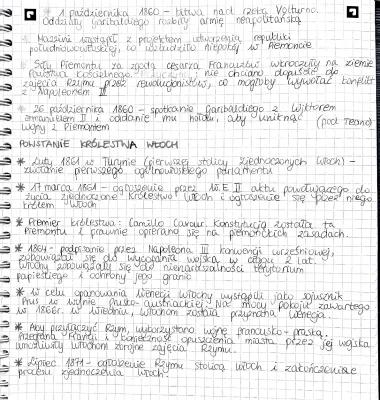 * 1 października 1860 - bitwa nad rzeką Volturno.
Oddziały Garibaldiego rozbiły armię neapolitańską
* Mazzini wystąpił z projektem utworzenia republiki
południowowłoskiej, co wzbudziło niepokój w Piemoncie
* Siły Piemontu za zgodą cesarza Francuzów wkroczyły na ziemie
Państwa Kościelnego - nie chciano dopuścić do
zajęcia Rzymu przez rewolucjonistów, co mogłoby wywołać konflikt
z Napoleonem III
* 26 października 1860 - spotkanie Garibaldiego z Wiktorem
Emmanuelem II i oddanie mu hołdu, aby uniknąć (pod Teano)
wojny z Piemontem
POWSTANIE KRÓLESTWA WŁOCH
* Luty 1861 w Turynie (pierwszej stolicy zjednoczonych Włoch) -
zwołanie pierwszego ogólnowłoskiego parlamentu
* 17 marca 1861 - ogłoszenie przez W.E II aktu powołującego do
życia zjednoczone Królestwo Włoch i ogłoszenie się przez niego
królem Włoch
* Premier królestwa: Camillo Cavour. Konstytucją została ta
Piemontu i prawnie opierano się na piemonckich zasadach.
* 1864 - podpisanie przez Napoleona III konwencji wrześniowej,
zobowiązał się do wycofania wojska w ciągu 2 lat.
Włochy zobowiązały się do nienaruszalności terytorium
papieskiego i ochrony jego granic
* W celu opanowania Wenecji Włochy wystąpiły jako sojusznik
Prus w wojnie prusko-austriackiej. Na mocy pokoju zawartego
w 1866r. w Wiedniu, Włochom została przyznana Wenecja.
* Aby przyłączyć Rzym, wykorzystano wojnę francusko-pruską.
Przegrana Francji i konieczność opuszczenia miasta przez jej wojska
umożliwiły Włochom zbrojne zajęcie Rzymu.
* Lipiec 1871 - ogłoszenie Rzymu stolicą Włoch i zakończenie
procesu zjednoczenia Włoch.